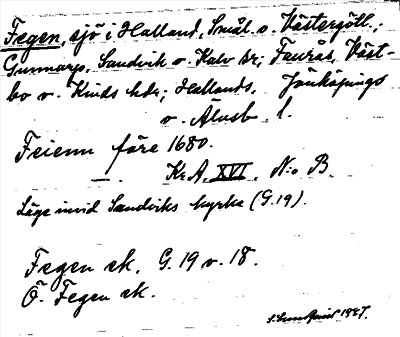 Fegen, sjö i Halland, Smål. o. Västergötl.;
Gunnarp, Sandvik o. Kalv sr; Faurås, Väst-
bo o. Kinds hdr; Hallands, Jönköpings
o. Älvsb. l.
Feienn före 1680.
—. Kr.A. XVI. N:o B.
Läge invid Sandviks kyrka (G.19).
Fegen ek. G. 19 o. 18.
Ö. Fegen ek.
1927.